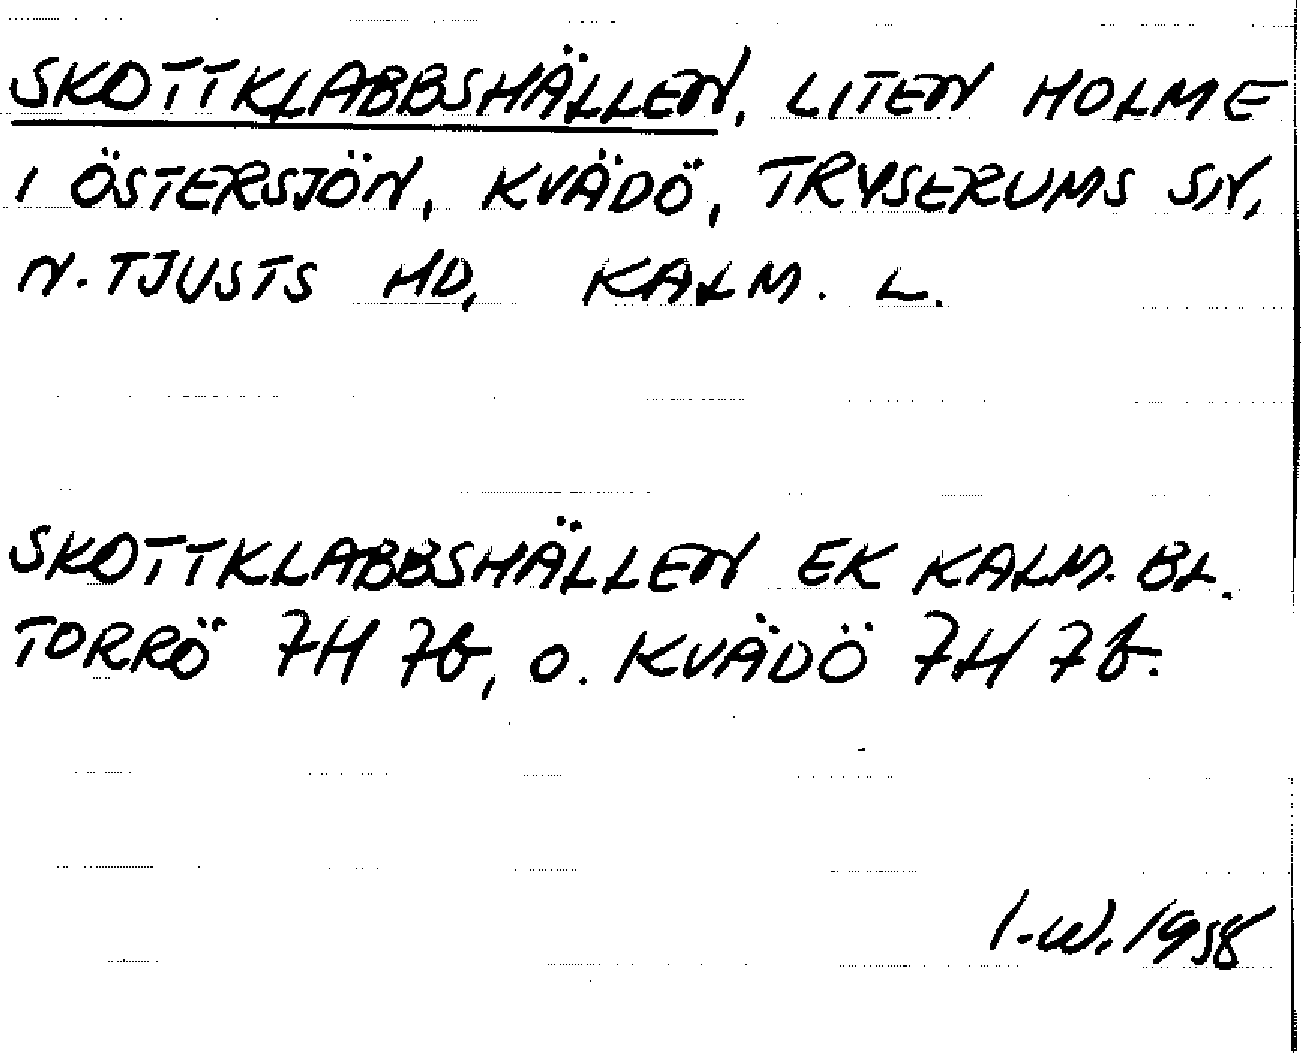 SKOTTKLABBSHÄLLEN, LITEN HOLME
I ÖSTERSJÖN, KVÄDÖ, TRYSERUMS SN,
N. TJUSTS HD, KALM. L.
SKOTTKLABBSHÄLLEN EK KALM. BL.
TORRÖ 7H 7b, O. KVÄDÖ 7H 7b.
I.W. 1958